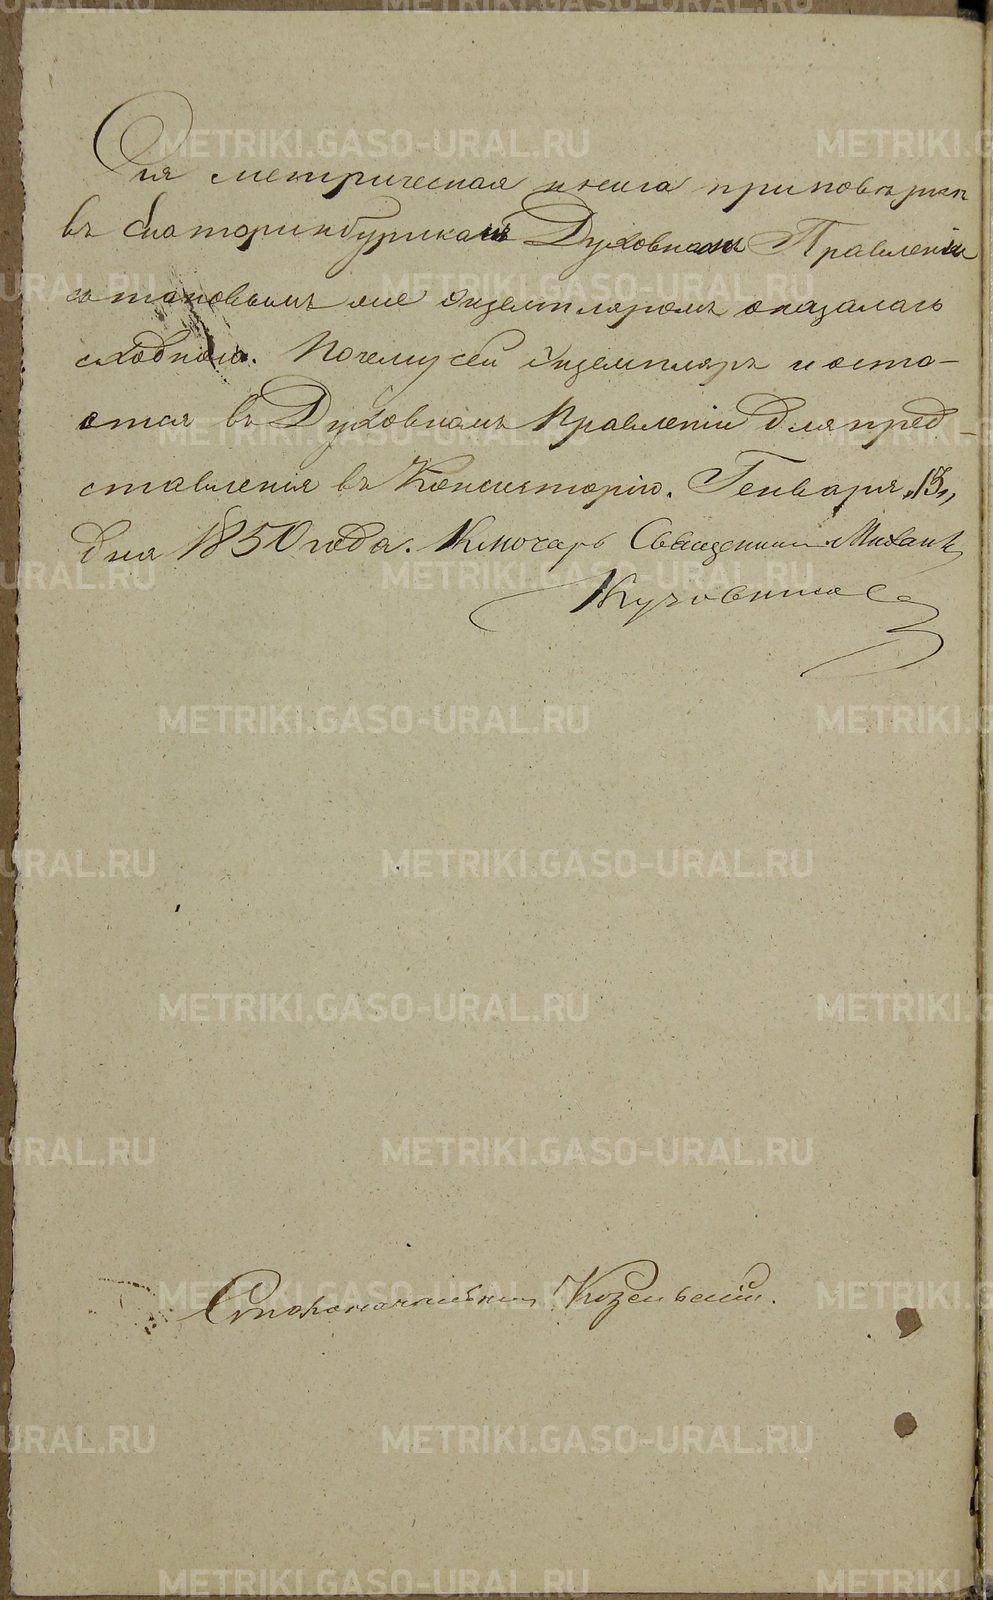 Сія метрическая книга при повѣркѣ
въ Екатеринбургскомъ Духовномъ Правленіи
съ таковымъ же экземпляромъ оказалась
сходною. Почему сей экземпляръ и оста-
ется въ Духовномъ Правленіи для пред-
ставленія въ Консисторію. Генваря „13„
дня 1850 года. Ключарь Священникъ Михаилъ
Столоначальникъ
METRIKI.GASO-URAL.RU